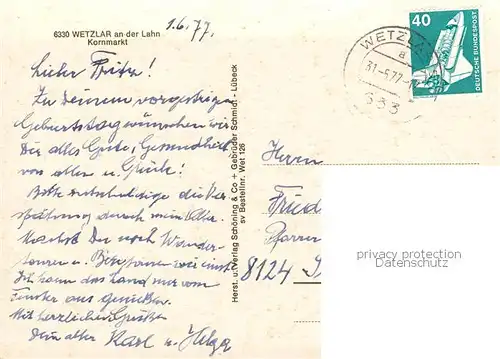 1.6.77.
6330 WETZLAR an der Lahn
Kornmarkt
Lieber Fritz!
Zu Deinem vorgestrigen
Geburtstag wünschen wir
Dir alles Gute, Gesundheit
vor allem u. Glück!
Bitte entschuldige die Ver-
spätung durch mein Alter.
Machst Du noch Wander-
touren u. Bergtouren wie einst
Ich kann das Land nur vom
Fenster aus genießen.
Mit herzlichen Grüßen
Dein alter Karl u. Helga
Herst. u. Verlag Schöning & Co + Gebrüder Schmidt - Lübeck
sv Bestellnr. Wet 126
WETZLAR
a
31.-5.77
633
40
DEUTSCHE BUNDESPOST
Herrn
Fried
Pfarrer
8124
privacy protection
Datenschutz